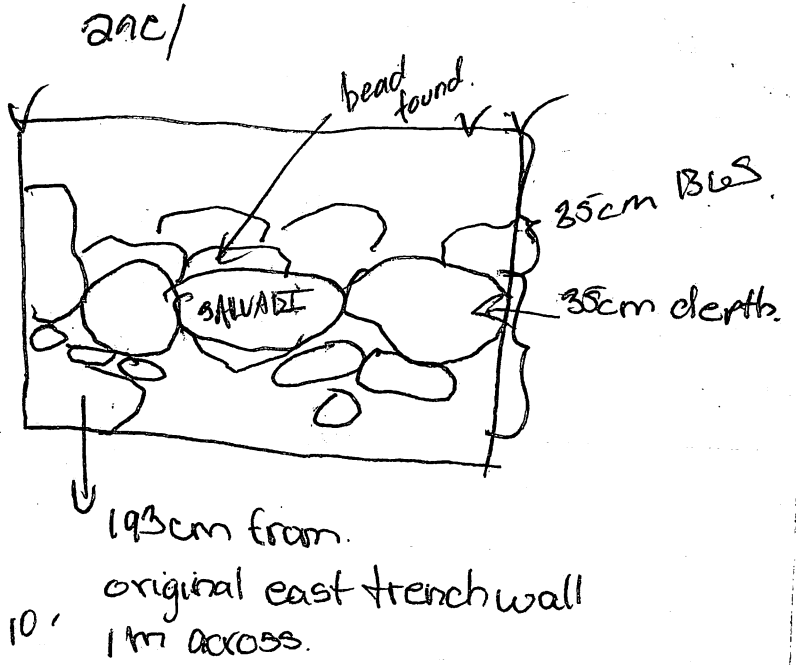 bead
found.
35cm BGS.
35cm depth.
193cm from.
original east trench wall
10'
1m across.